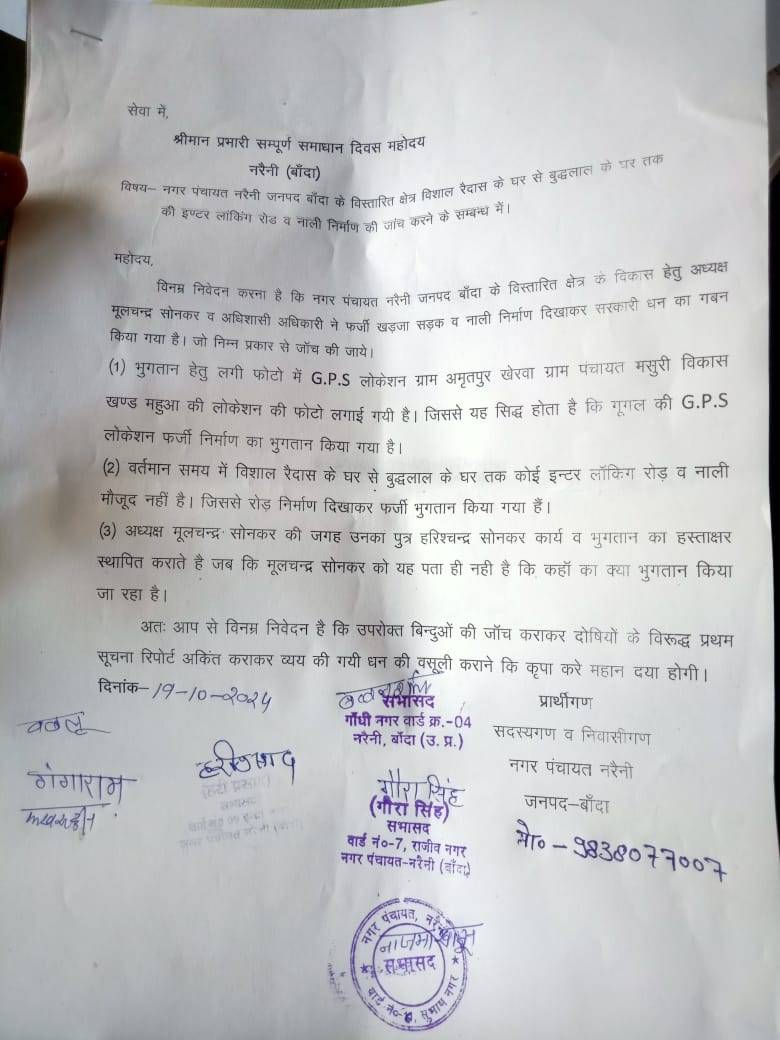 सेवा में,
श्रीमान प्रभारी सम्पूर्ण समाधान दिवस महोदय
नरैनी (बाँदा)
विषय– नगर पंचायत नरैनी जनपद बाँदा के विस्तारित क्षेत्र विशाल रैदास के घर से बुद्धलाल के घर तक
की इण्टर लांकिंग रोड व नाली निर्माण की जाँच करने के सम्बन्ध में।
महोदय,
विनम्र निवेदन करना है कि नगर पंचायत नरैनी जनपद बाँदा के विस्तारित क्षेत्र के विकास हेतु अध्यक्ष
मूलचन्द्र सोनकर व अधिशासी अधिकारी ने फर्जी खड़जा सड़क व नाली निर्माण दिखाकर सरकारी धन का गबन
किया गया है। जो निम्न प्रकार से जॉच की जाये।
(1) भुगतान हेतु लगी फोटो में G.P.S लोकेशन ग्राम अमृतपुर खेरवा ग्राम पंचायत मसुरी विकास
खण्ड महुआ की लोकेशन की फोटो लगाई गयी है। जिससे यह सिद्ध होता है कि गूगल की G.P.S
लोकेशन फर्जी निर्माण का भुगतान किया गया है।
(2) वर्तमान समय में विशाल रैदास के घर से बुद्धलाल के घर तक कोई इन्टर लॉकिग रोड़ व नाली
मौजूद नहीं है। जिससे रोड़ निर्माण दिखाकर फर्जी भुगतान किया गया हैं।
(3) अध्यक्ष मूलचन्द्र सोनकर की जगह उनका पुत्र हरिश्चन्द्र सोनकर कार्य व भुगतान का हस्ताक्षर
स्थापित कराते है जब कि मूलचन्द्र सोनकर को यह पता ही नही है कि कहॉ का क्या भुगतान किया
जा रहा है।
अतः आप से विनम्र निवेदन है कि उपरोक्त बिन्दुओं की जॉच कराकर दोषियों के विरूद्ध प्रथम
सूचना रिपोर्ट अकिंत कराकर व्यय की गयी धन की वसूली कराने कि कृपा करे महान दया होगी।
दिनांक–19-10-2024
सभासद
गाँधी नगर वार्ड क्र.-04
नरैनी, बाँदा (उ. प्र.)
प्रार्थीगण
सदस्यगण व निवासीगण
नगर पंचायत नरैनी
जनपद–बाँदा
मो० - 9838077007
गंगाराम
गौरा सिंह
(गौरा सिंह)
सभासद
वार्ड नं०-7, राजीव नगर
नगर पंचायत-नरैनी (बाँदा)
नगर पंचायत, नरैनी
नाजमा
सभासद
वार्ड नं० सुभाष नगर